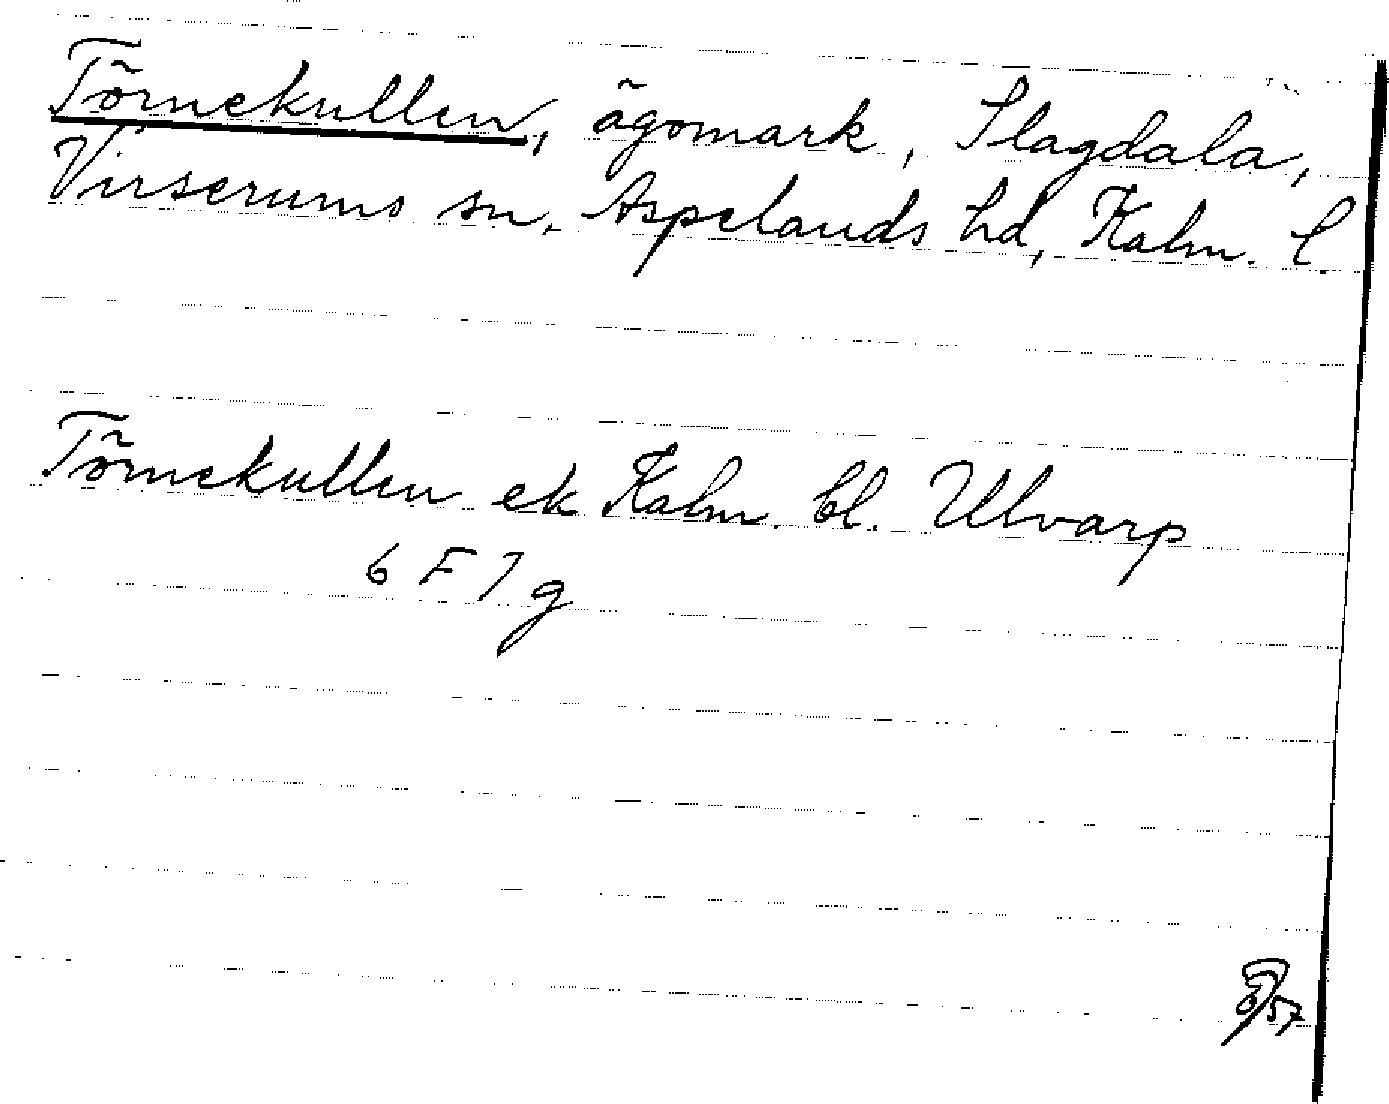 Törnekullen, ägomark, Slagdala,
Virserums sn, Aspelands hd, Kalm. l.
Törnekullen ek Kalm. bl. Ulvarp
6 F 7 g